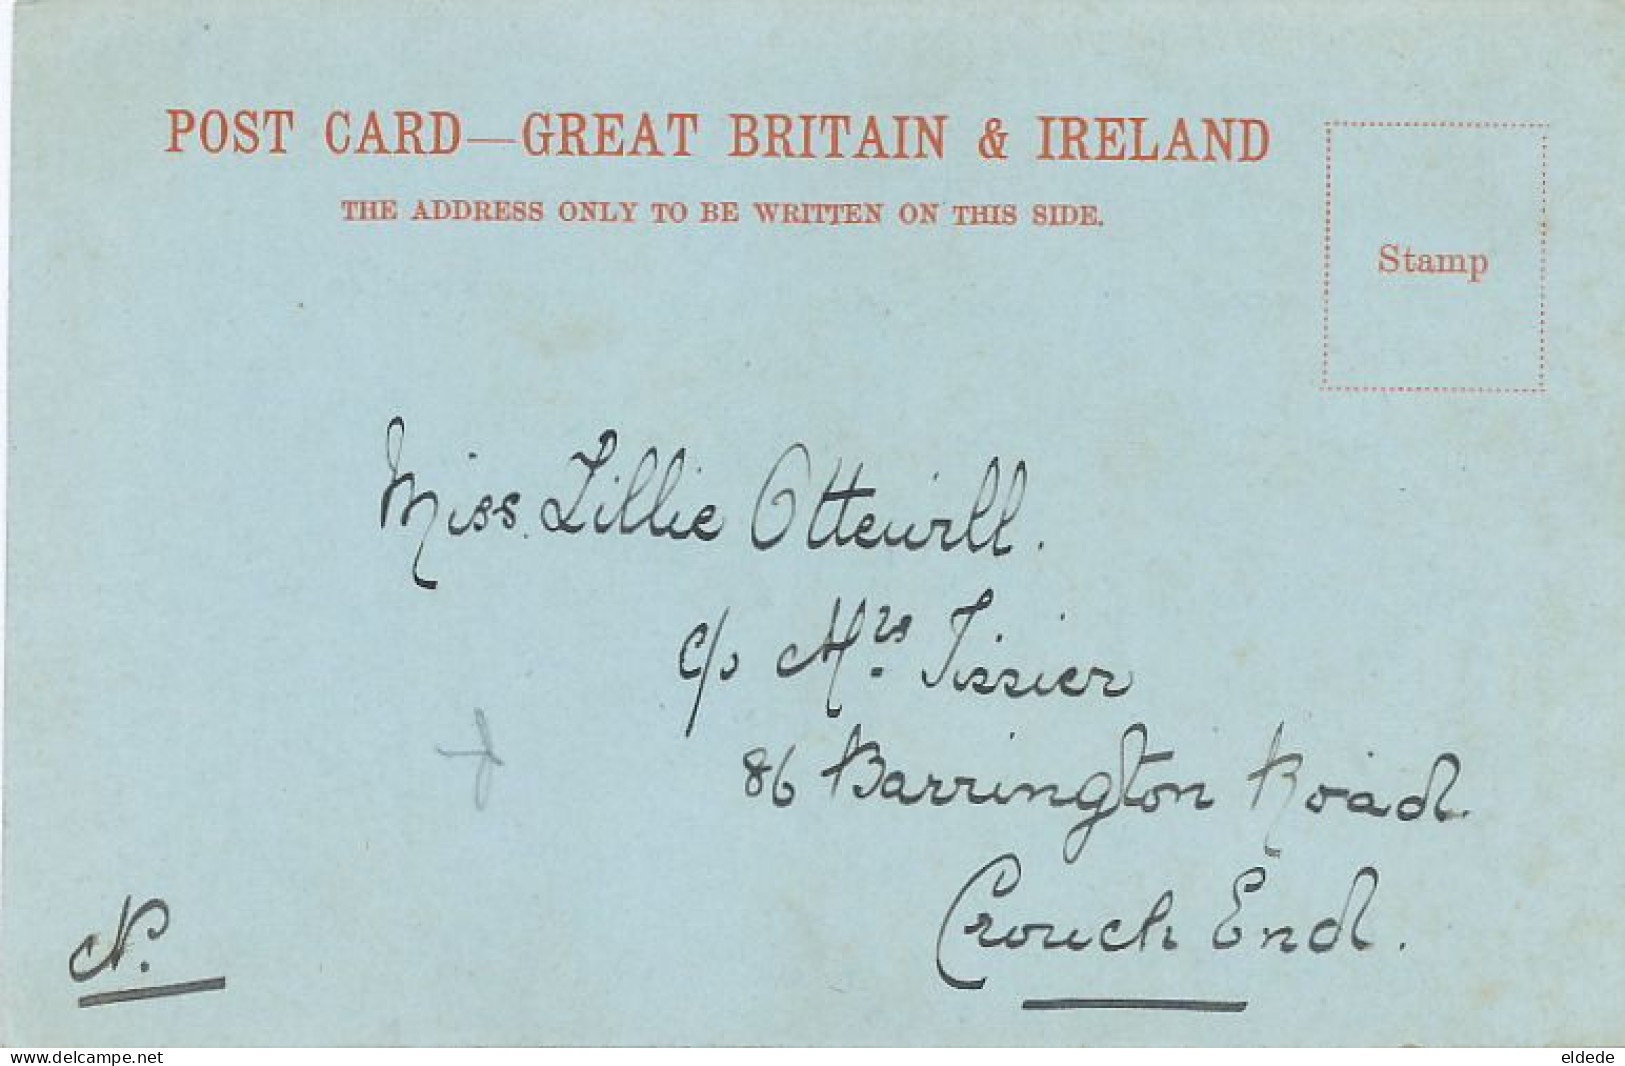 POST CARD—GREAT BRITAIN & IRELAND
THE ADDRESS ONLY TO BE WRITTEN ON THIS SIDE.
Stamp
Miss. Lillie Ottewill.
c/o Mrs. Tissier
86 Barrington Road.
Crouch End.
N.
www.delcampe.net
eldede